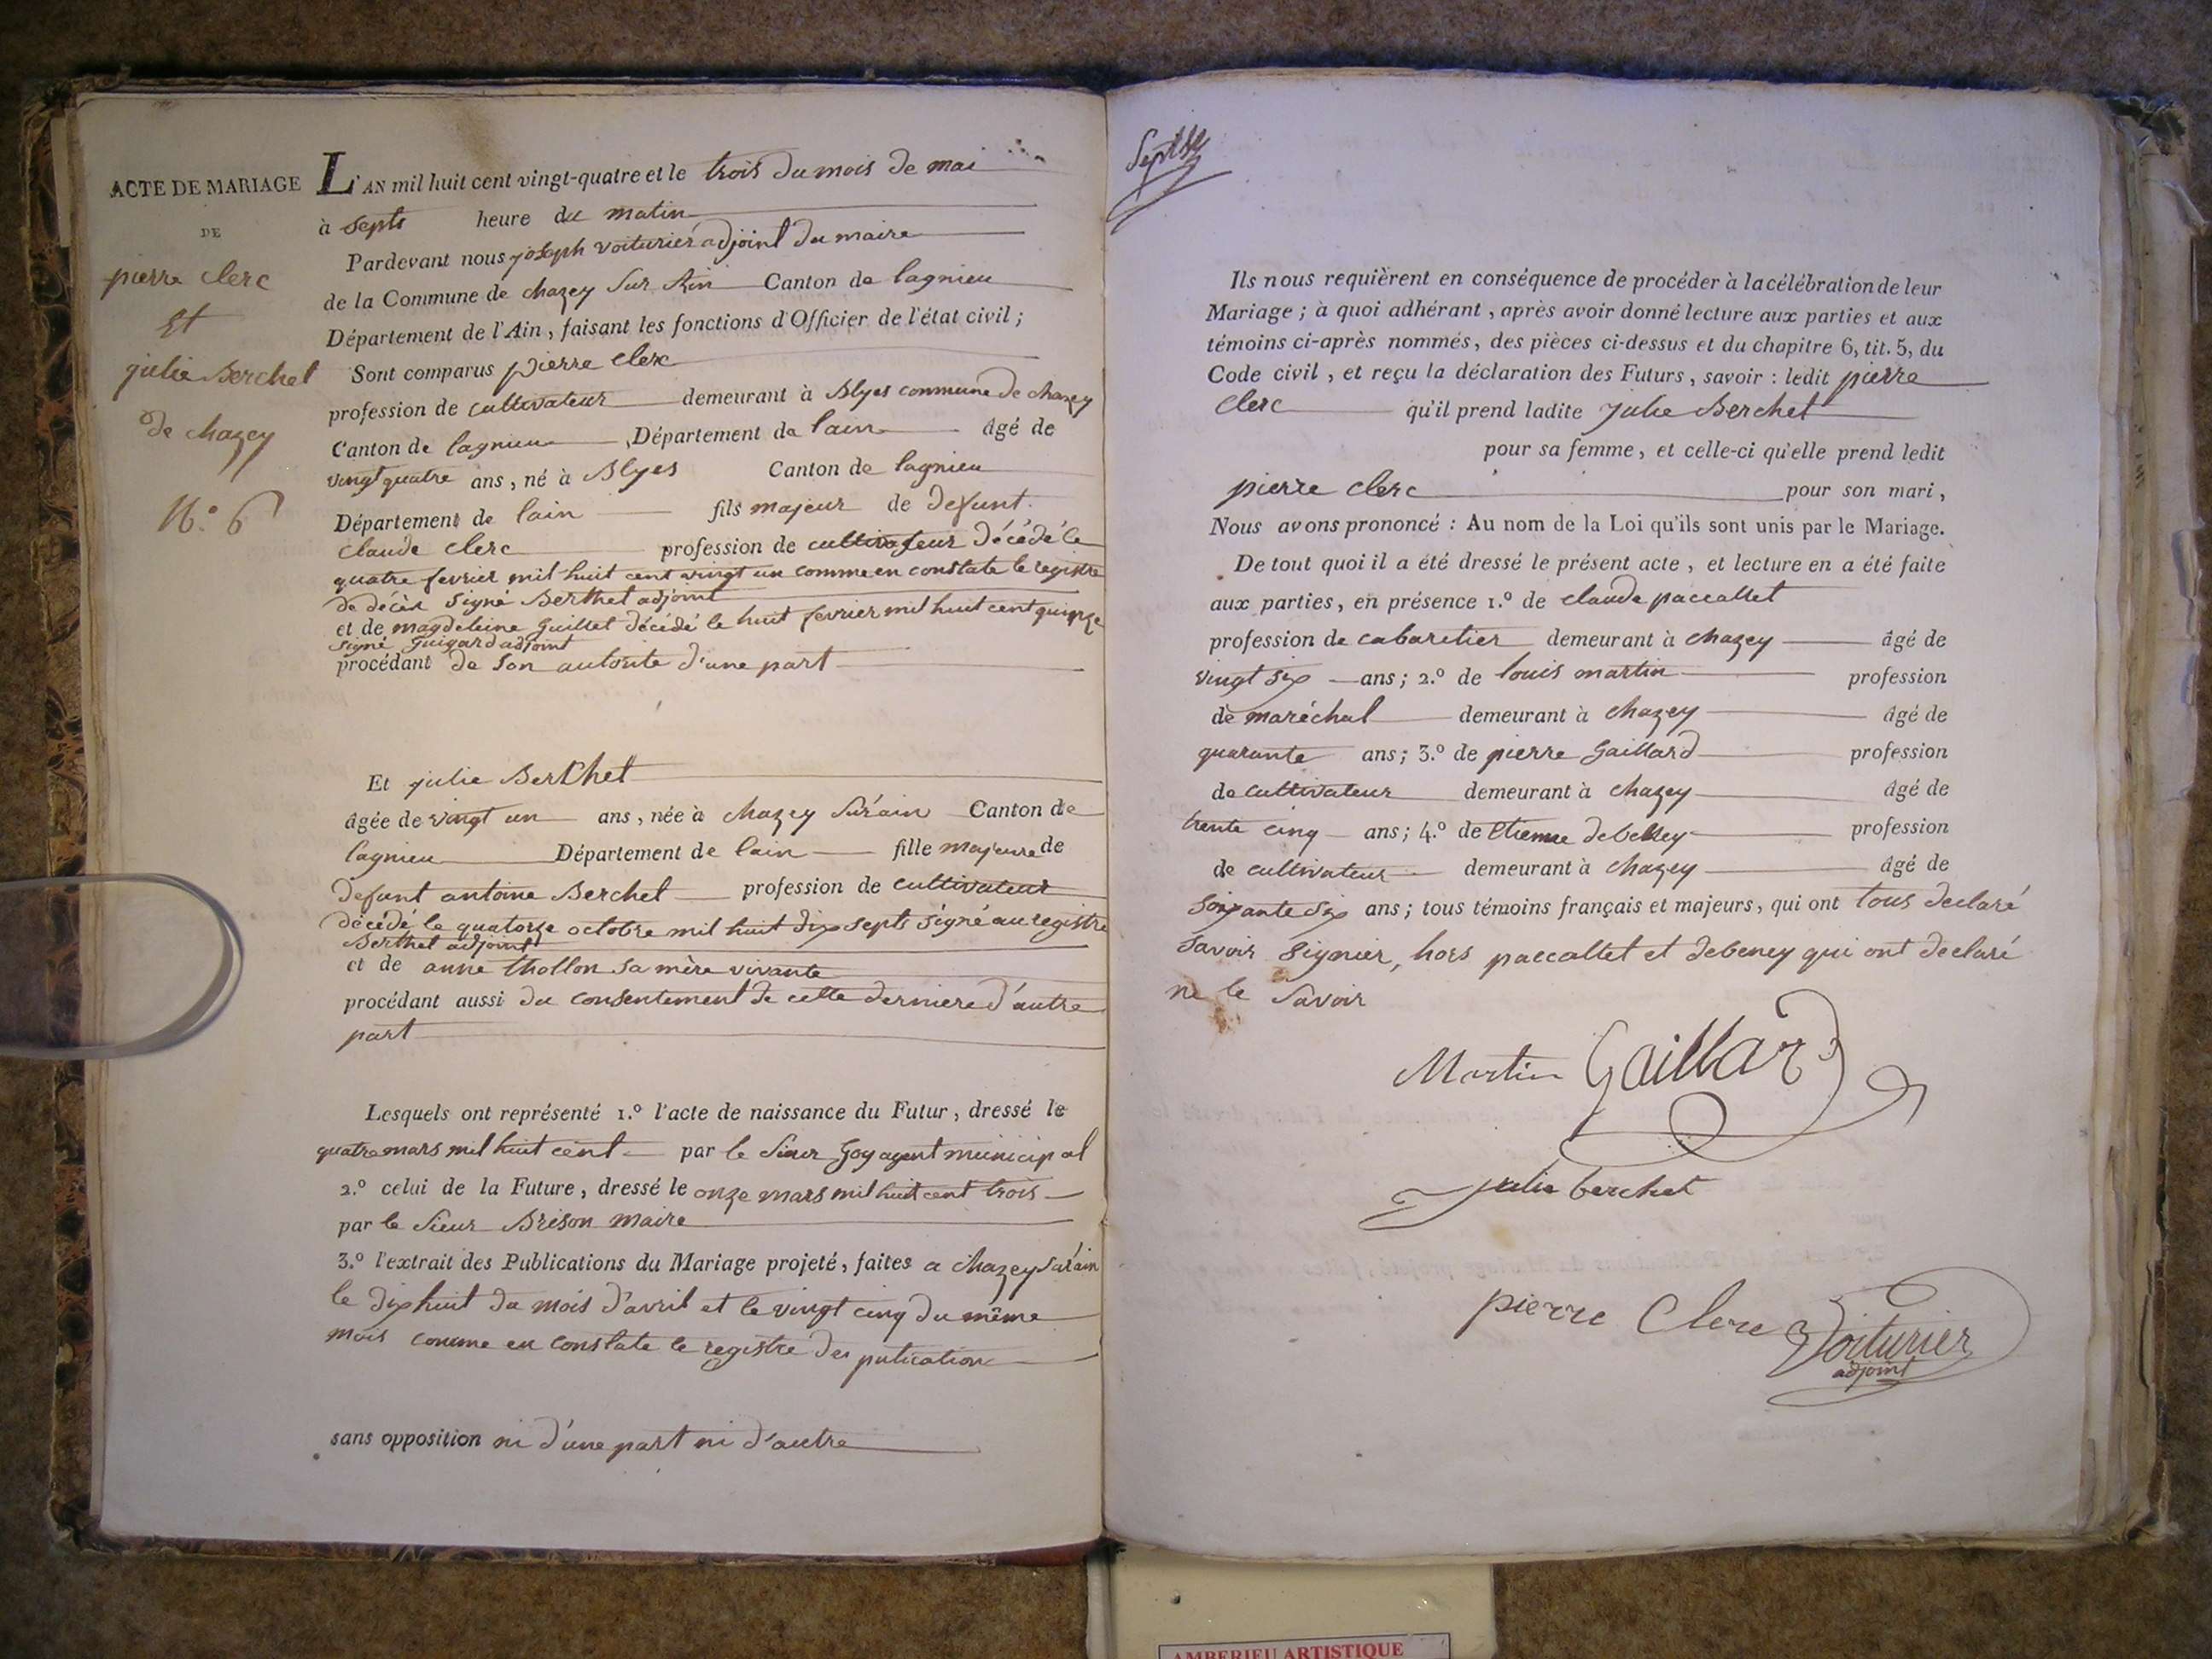 ACTE DE MARIAGE
DE
pierre clerc
Et
julie Berchet
de chazey
N.° 6
L'AN mil huit cent vingt-quatre et le trois du mois de mai
à septs heure du matin
Pardevant nous joseph voiturier adjoint du maire
de la Commune de chazey Sur Ain Canton de lagnieu
Département de l'Ain, faisant les fonctions d'Officier de l'état civil;
Sont comparus pierre clerc
profession de cultivateur demeurant à Blyes commune de chazey
Canton de lagnieu Département de lain âgé de
vingt quatre ans, né à Blyes Canton de lagnieu
Département de lain fils majeur de defunt
claude clerc profession de cultivateur décédé le
quatre fevrier mil huit cent vingt un comme en constate le registre
de décès signé Berthet adjoint
et de magdeleine Guillet décédé le huit fevrier mil huit cent quinze
signé Guigard adjoint
procédant de son autorite d'une part
Et julie Berchet
âgée de vingt un ans, née à chazey Sur ain Canton de
lagnieu Département de lain fille majeure de
defunt antoine Berchet profession de cultivateur
décédé le quatorze octobre mil huit dix septs signé au registre
Berthet adjoint
et de anne thollon sa mère vivante
procédant aussi du consentement de cette derniere d'autre
part
Lesquels ont représenté 1.° l'acte de naissance du Futur, dressé le
quatre mars mil huit cent par le Sieur Goy agent municipal
2.° celui de la Future, dressé le onze mars mil huit cent trois
par le Sieur Brison maire
3.° l'extrait des Publications du Mariage projeté, faites a chazey sur ain
le dix huit du mois d'avril et le vingt cinq du même
mois comme en constate le registre des putication
sans opposition ni d'une part ni d'autre
Ils nous requièrent en conséquence de procéder à la célébration de leur
Mariage; à quoi adhérant, après avoir donné lecture aux parties et aux
témoins ci-après nommés, des pièces ci-dessus et du chapitre 6, tit. 5, du
Code civil, et reçu la déclaration des Futurs, savoir: ledit pierre
clerc qu'il prend ladite Julie Berchet
pour sa femme, et celle-ci qu'elle prend ledit
pierre clerc pour son mari,
Nous avons prononcé: Au nom de la Loi qu'ils sont unis par le Mariage.
De tout quoi il a été dressé le présent acte, et lecture en a été faite
aux parties, en présence 1.° de claude paccallet
profession de cabaretier demeurant à chazey âgé de
vingt six ans; 2.° de louis martin profession
de maréchal demeurant à chazey âgé de
quarante ans; 3.° de pierre Gaillard profession
de cultivateur demeurant à chazey âgé de
trente cinq ans; 4.° de Etienne profession
de cultivateur demeurant à chazey âgé de
soixante six ans; tous témoins français et majeurs, qui ont tous declaré
savoir signier, hors paccallet et debeney qui ont declaré
ne le savoir
Martin Gaillard
julie berchet
pierre Clerc Voiturier
adjoint
AMBERIEU ARTISTIQUE